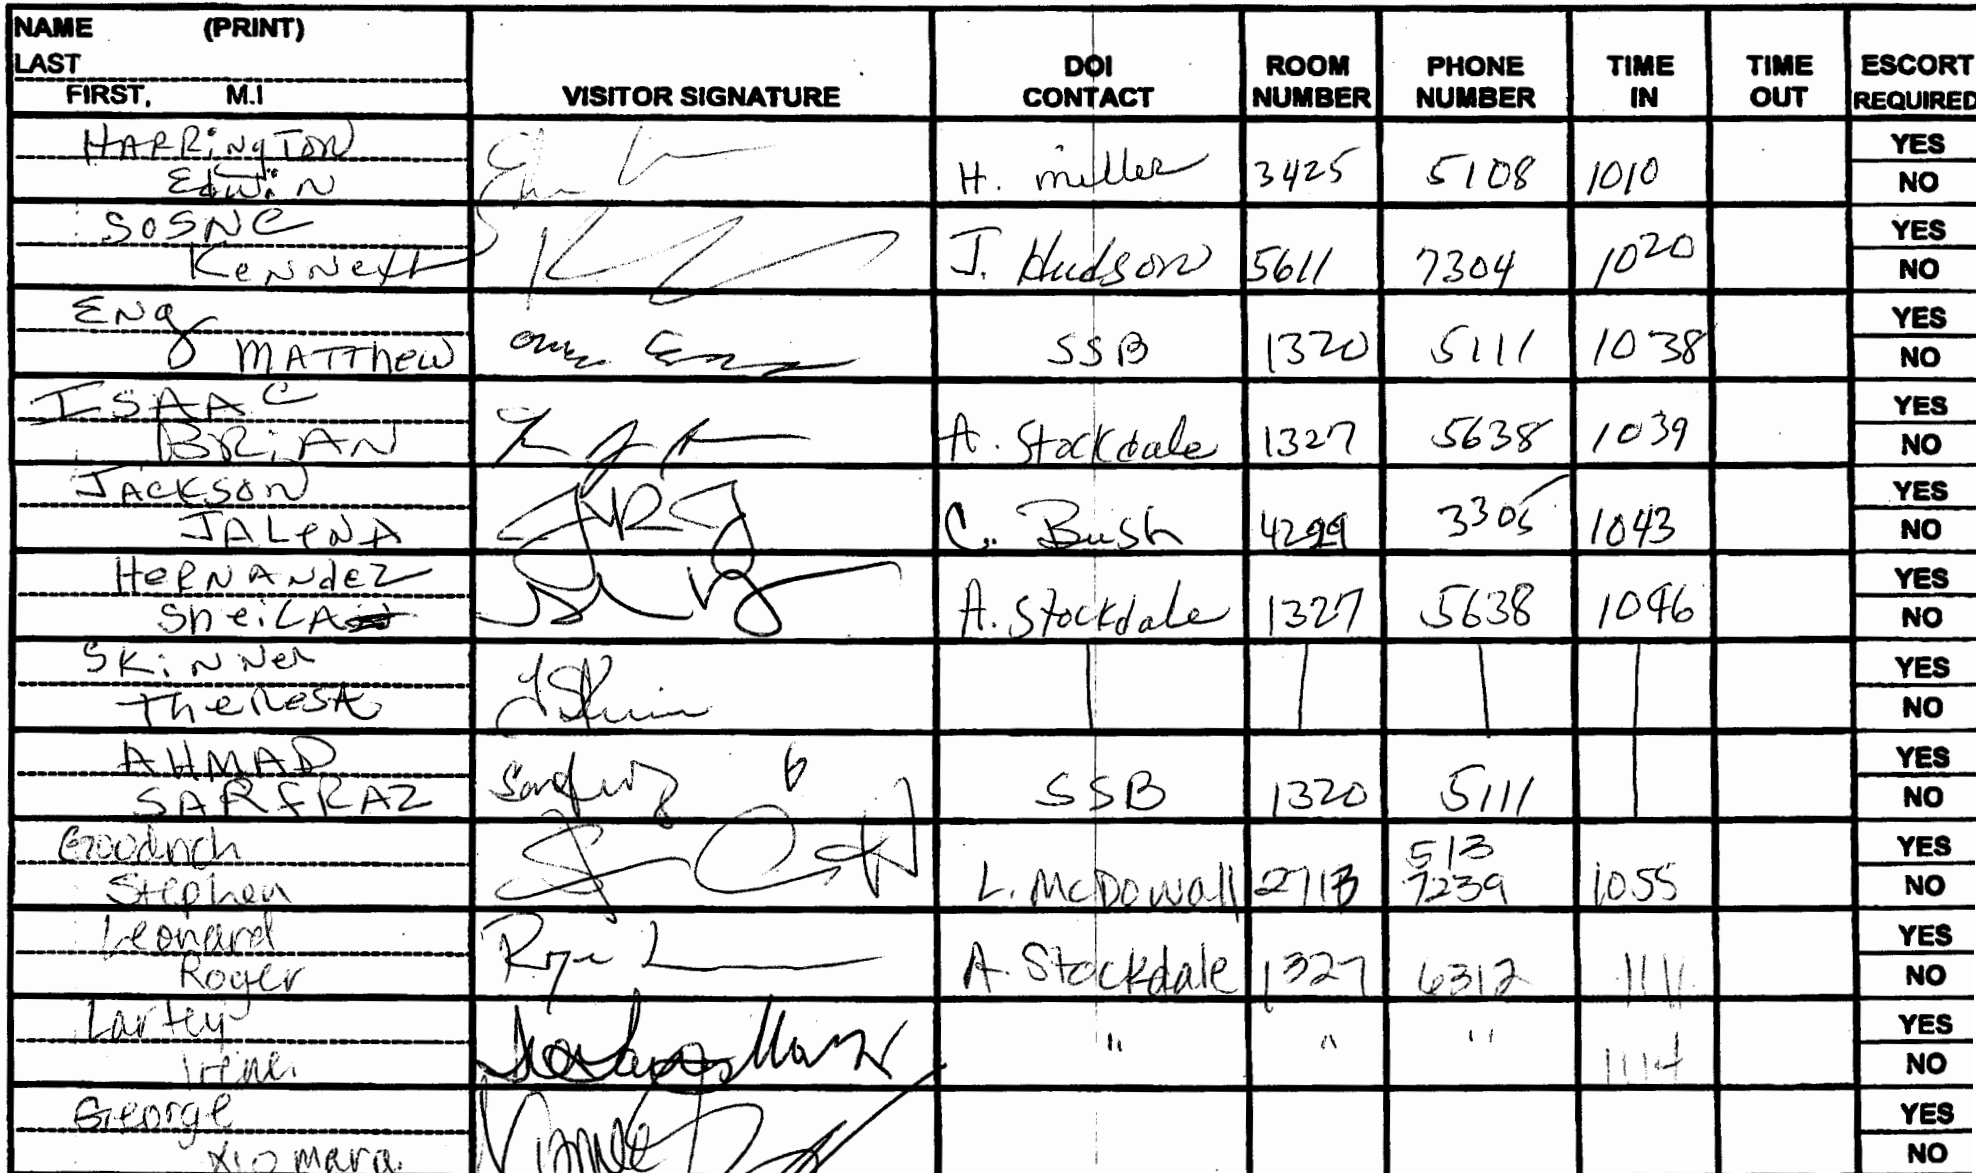 NAME (PRINT)
LAST
FIRST, M.I
VISITOR SIGNATURE
DOI CONTACT
ROOM NUMBER
PHONE NUMBER
TIME IN
TIME OUT
ESCORT REQUIRED
HARRiNgTON
Edwin H. miller 3425 5108 1010 YES NO
SOSNE
KeNNeth J. Hudson 5611 7304 1020 YES NO
ENg
MATThew SSB 1320 5111 1038 YES NO
ISAAC
BRiAN A. Stockdale 1327 5638 1039 YES NO
JACKSON
JALeNA C. Bush 4299 3305 1043 YES NO
HeRNANdez
SheiLA A. Stockdale 1327 5638 1046 YES NO
SKiNNer
TheResA YES NO
AHMAD
SARFRAZ SSB 1320 5111 YES NO
Goodrich
Stephen L. McDowall 2713 513 7239 1055 YES NO
Leonard
Roger A. Stockdale 1327 6312 1111 YES NO
Lartey
Irene " " " 1114 YES NO
George
Xiomara YES NO